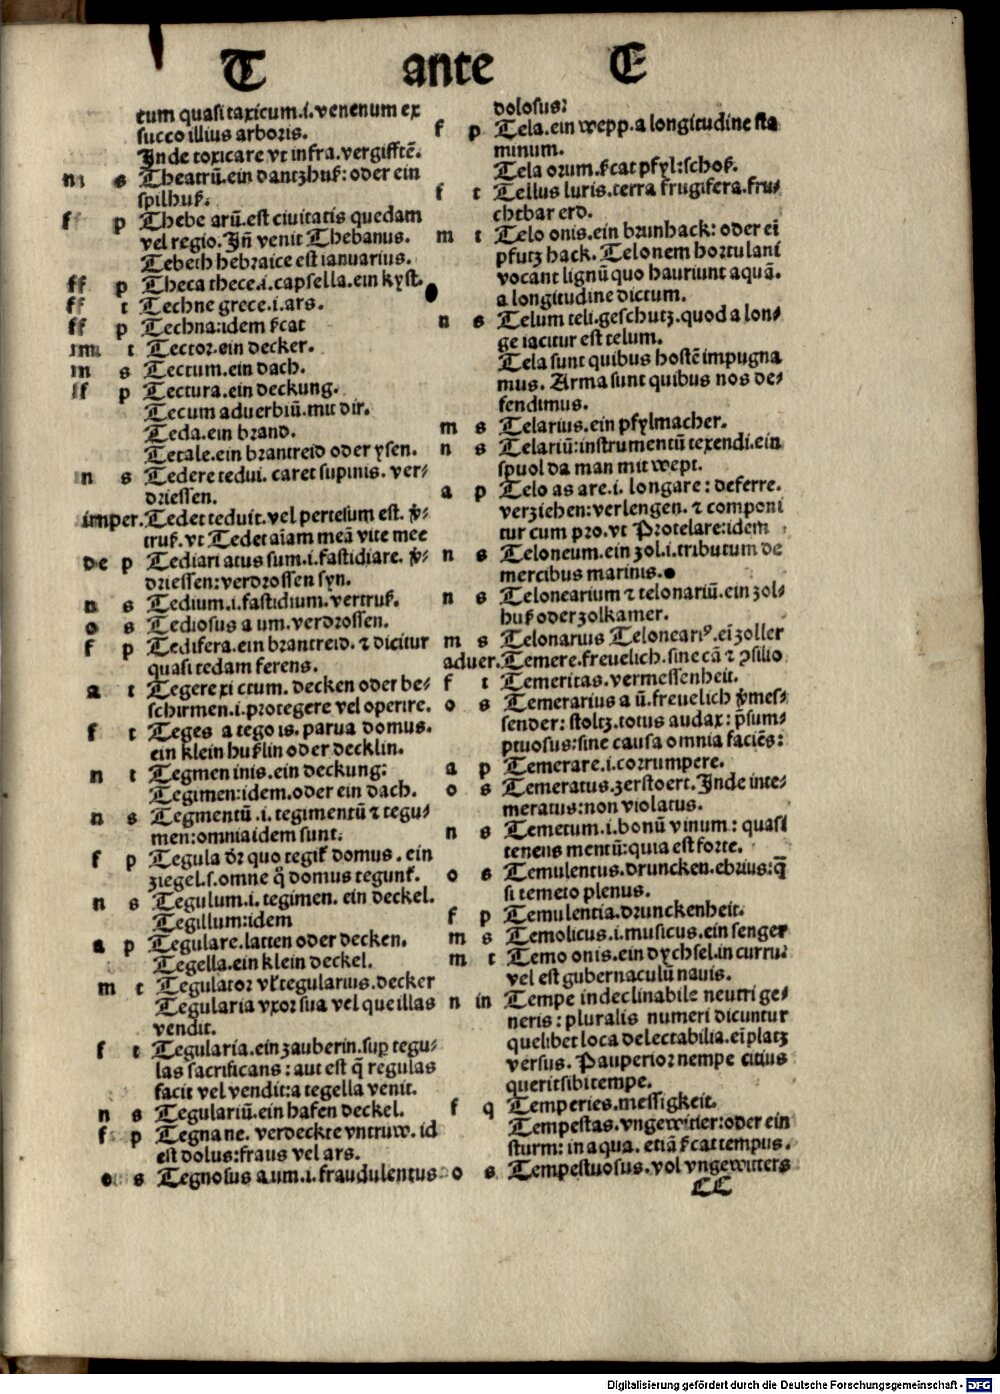 T ante E
tum quasi taxicum.i.venenum ex
succo illius arboris.
Inde toxicare vt infra.vergifftē.
m s Theatrū.ein dantzhuß: oder ein
spilhuß.
f p Thebe arū.est ciuitatis quedam
vel regio.Jñ venit Thebanus.
Tebeth hebraice est ianuarius.
ff p Theca thece.i.capsella.ein kyst.
ff t Techne grece.i.ars.
ff p Techna:idem ſcat
m t Tector.ein decker.
n s Tectum.ein dach.
ff p Tectura.ein deckung.
Tecum aduerbiū.mit dir.
Teda.ein brand.
Tetale.ein brantreid oder ysen.
n s Tedere tedui. caret supinis. ver⸗
driessen.
imper. Tedet teduit.vel pertesum est. v̾⸗
truß.vt Tedet aīam meā vite mee
de p Tediari atus sum.i.fastidiare. v̾⸗
driessen:verdrossen syn.
n s Tedium.i.fastidium.vertruß.
o s Tediosus a um.verdrossen.
f p Tedifera.ein brantreid. ⁊ dicitur
quasi tedam ferens.
a t Tegere xi ctum. decken oder be⸗
schirmen.i.protegere vel operire.
f t Teges a tego is. parua domus.
ein klein hußlin oder decklin.
n t Tegmen inis.ein deckung:
Tegimen:idem.oder ein dach.
n s Tegmentū.i.tegimentū ⁊ tegu⸗
men:omnia idem sunt.
f p Tegula dr̄ quo tegit̄ domus. ein
ziegel.s.omne q̄ domus tegunt̄.
n s Tegulum.i.tegimen. ein deckel.
Tegillum:idem
a p Tegulare.latten oder decken.
Tegella.ein klein deckel.
m t Tegulator vl̄ tegularius.decker
Tegularia vxor sua vel que illas
vendit.
f t Tegularia.ein zauberin.sup̲ tegu⸗
las sacrificans: aut est q̄ regulas
facit vel vendit:a tegella venit.
n s Tegulariū.ein hafen deckel.
f p Tegna ne. verdeckte vntruw. id
est dolus:fraus vel ars.
o s Tegnosus a um.i.fraudulentus
dolosus:
f p Tela.ein wepp.a longitudine sta
minum.
Tela orum.ſcat pfyl:schoß.
f t Tellus luris.terra frugifera.fru⸗
chtbar erd.
m t Telo onis.ein brunhack: oder eī
pfutz hack. Telonem hortulani
vocant lignū quo hauriunt aquā.
a longitudine dictum.
n s Telum teli.geschutz.quod a lon⸗
ge iacitur est telum.
Tela sunt quibus hostē impugna
mus. Arma sunt quibus nos de⸗
fendimus.
m s Telarius.ein pfylmacher.
n s Telariū:instrumentū texendi.ein
spuol da man mit wept.
a p Telo as are.i. longare: deferre.
verziehen:verlengen. ⁊ componi
tur cum pro.vt Protelare:idem
n s Teloneum.ein zol.i.tributum de
mercibus marinis.
n s Telonearium ⁊ telonariū.ein zol⸗
huß oder zolkamer.
m s Telonarius Telonearꝰ.eī zoller
aduer. Temere.freuelich.sine cā ⁊ ꝯsilio
f t Temeritas.vermessenheit.
o s Temerarius a ū.freuelich v̾mes⸗
sender: stoltz.totus audax: p̄sum⸗
ptuosus:sine causa omnia faciēs:
a p Temerare.i.corrumpere.
o s Temeratus.zerstoert.Inde inte⸗
meratus:non violatus.
n s Temetum.i.bonū vinum: quasi
tenens mentū:quia est forte.
o s Temulentus.druncken.ebrius:q̄
si temeto plenus.
f p Temulentia.drunckenheit.
m s Temolicus.i.musicus.ein senger
m t Temo onis.ein dychsel.in curru:
vel est gubernaculū nauis.
n in Tempe indeclinabile neutri ge⸗
neris: pluralis numeri dicuntur
quelibet loca delectabilia.eī platz
versus. Pauperior nempe citius
querit sibi tempe.
f q Temperies.messigkeit.
Tempestas.vngewitter:oder ein
sturm: in aqua. etiā ſcat tempus.
o s Tempestuosus.vol vngewitters
CC
Digitalisierung gefördert durch die Deutsche Forschungsgemeinschaft - DFG